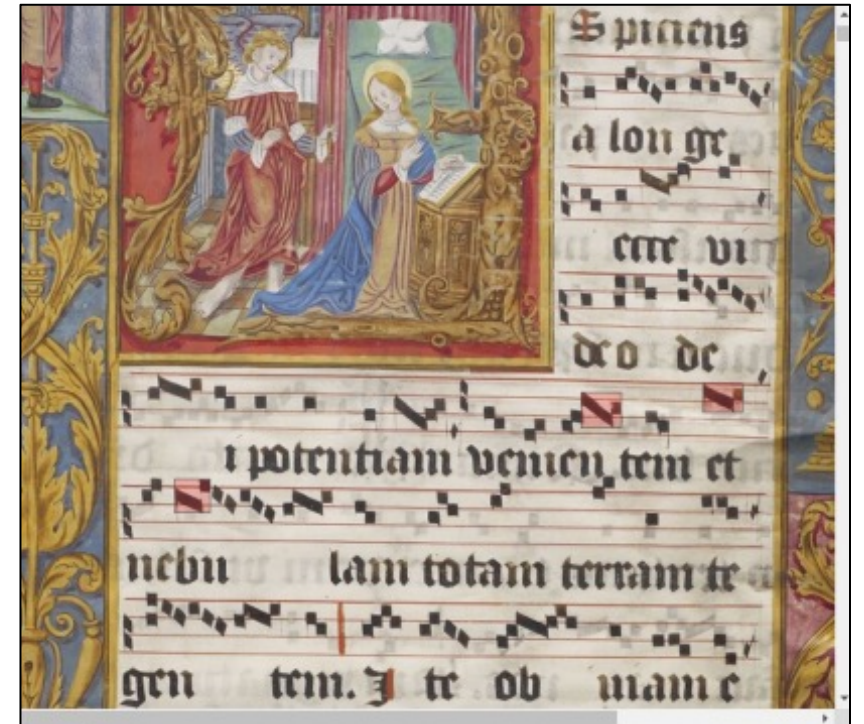 Spiciens
a lon ge
ecce vi
deo de
i potentiam venien tem et
nebu lam totam terram te
gen tem. I te ob uiam e